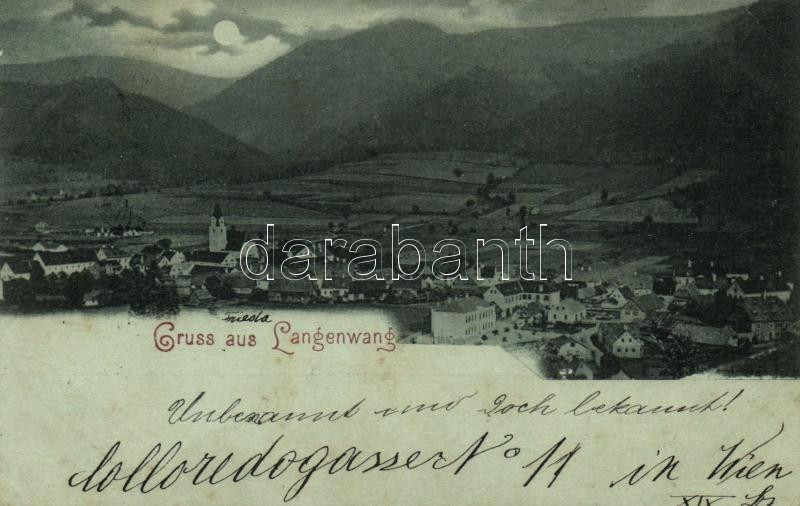 darabanth
Frieda
Gruss aus Langenwang
Unbekannt und Doch bekannt!
Colloredogasse No 11 in Wien
XIX